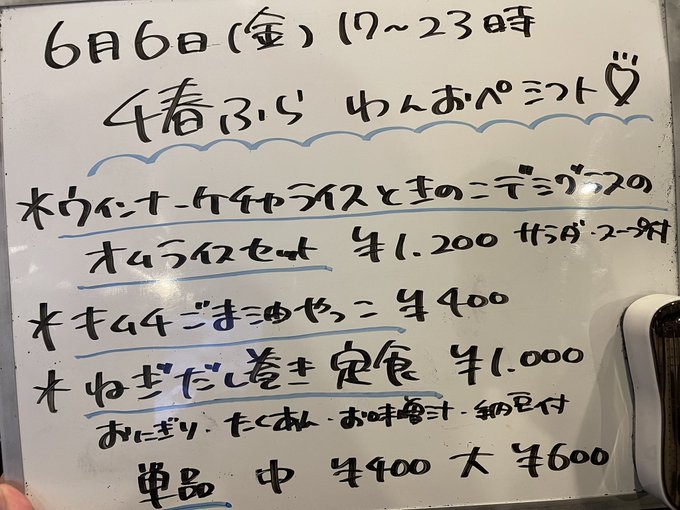 6月6日(金) 17〜23時
千春ふら わんおぺミフト♡
*ウィンナーケチャライスときのこデミグラスの
オムライスセット ¥1.200 サラダ・スープ付
*キムチごま油やっこ ¥400
*ねぎだし巻き定食 ¥1.000
おにぎり・たくあん・お味噌汁・納豆付
単品 中 ¥400 大 ¥600